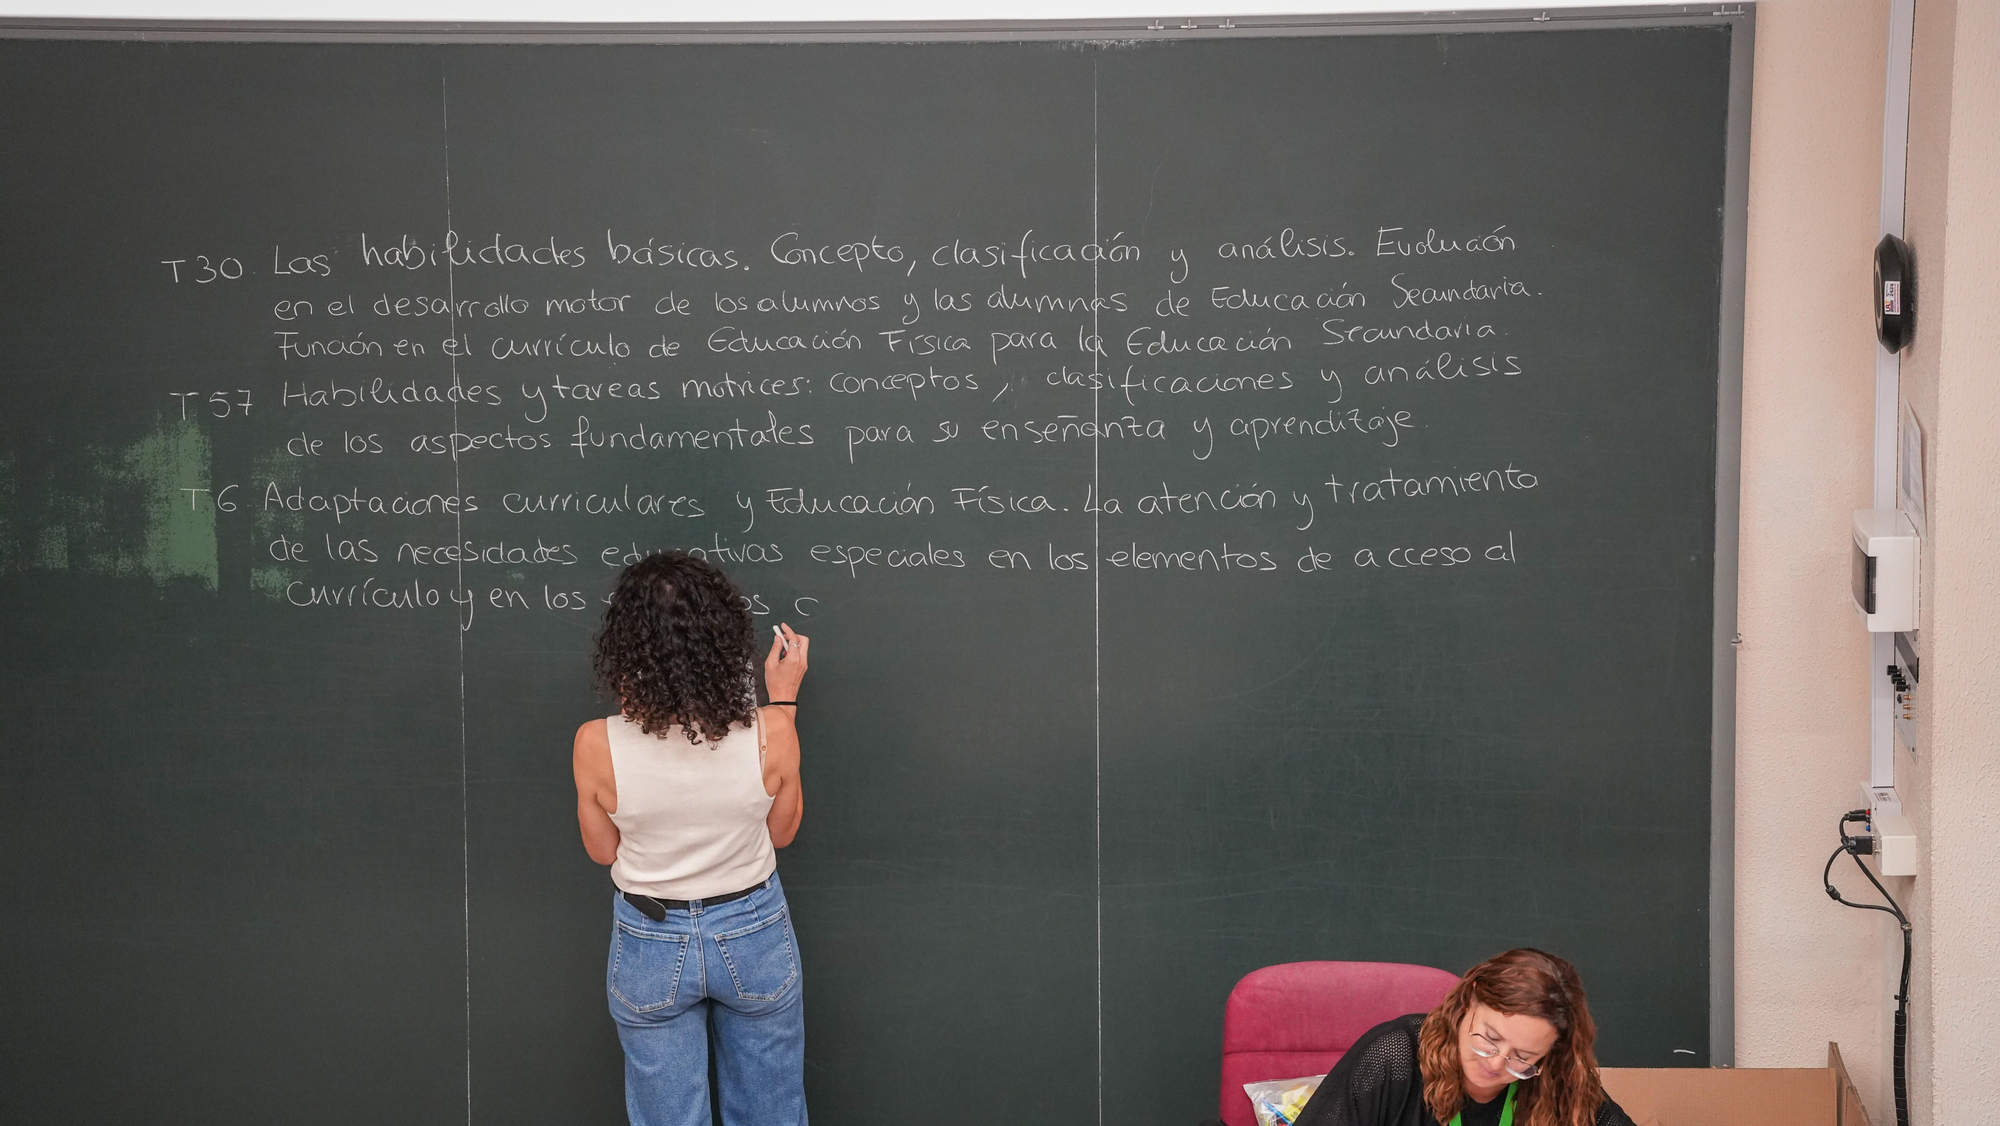 T30. Las habilidades básicas. Concepto, clasificación y análisis. Evolución
en el desarrollo motor de los alumnos y las alumnas de Educación Secundaria.
Función en el currículo de Educación Física para la Educación Secundaria.
T57 Habilidades y tareas motrices: conceptos, clasificaciones y análisis
de los aspectos fundamentales para su enseñanza y aprendizaje.
T6 Adaptaciones curriculares y Educación Física. La atención y tratamiento
de las necesidades educativas especiales en los elementos de acceso al
currículo y en los